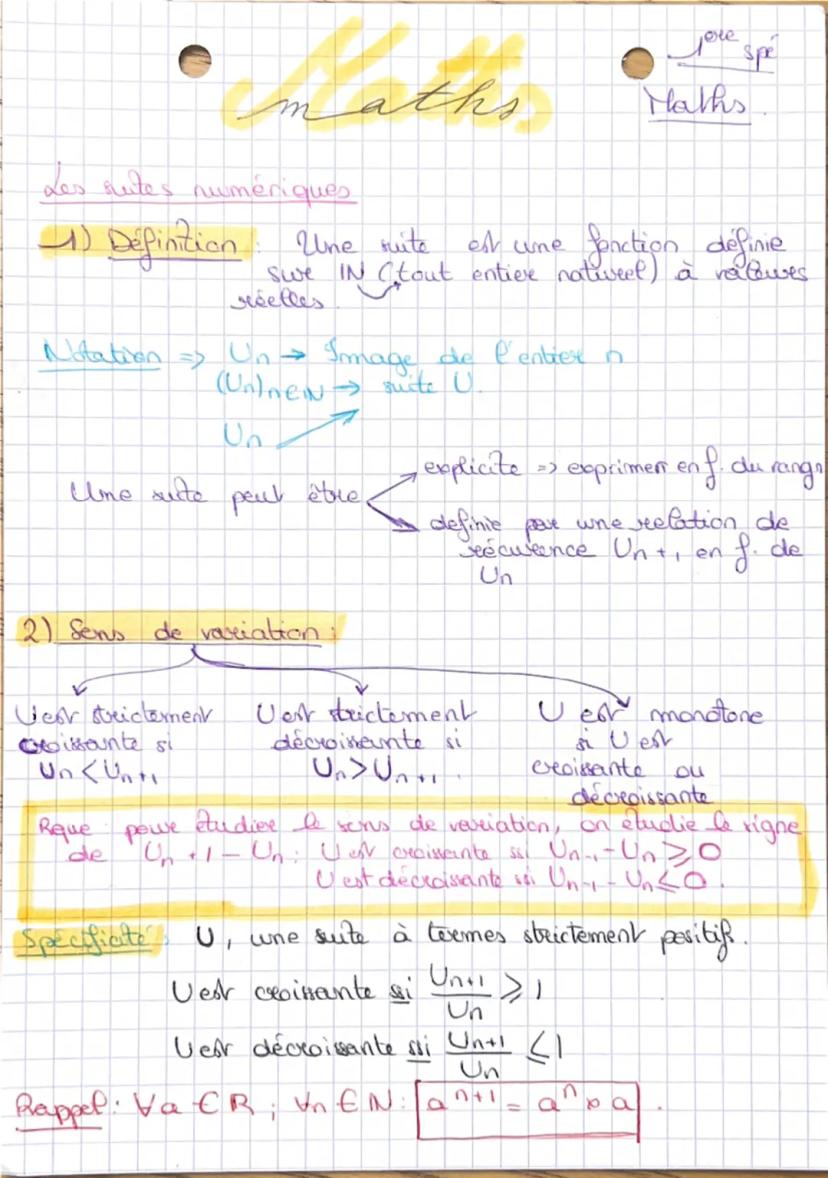 Maths
maths
1ere spé
Maths.
Les suites numériques
1) Définition : Une suite est une fonction définie
sur IN (tout entier naturel) à valeurs
réelles.
Notation => Un → Image de l'entier n
(Un)n∈IN → suite U.
Un
Une suite peut être
explicite => exprimer en f. du rang n
definie par une relation de
récurence Un+1 en f. de
Un
2) Sens de variation :
U est strictement
croissante si
Un < Un+1
U est strictement
décroissante si
Un > Un+1.
U est monotone
si U est
croissante ou
décroissante
Rque : pour étudier le sens de variation, on étudie le signe
de Un+1 - Un : U est croissante ssi Un-1 - Un ≥ 0
U est décroissante ssi Un-1 - Un ≤ 0.
Spécificité : U, une suite à termes strictement positifs.
U est croissante ssi Un+1/Un ≥ 1
U est décroissante ssi Un+1/Un ≤ 1
Rappel : ∀a ∈ R ; ∀n ∈ IN : a^n+1 = a^n × a.